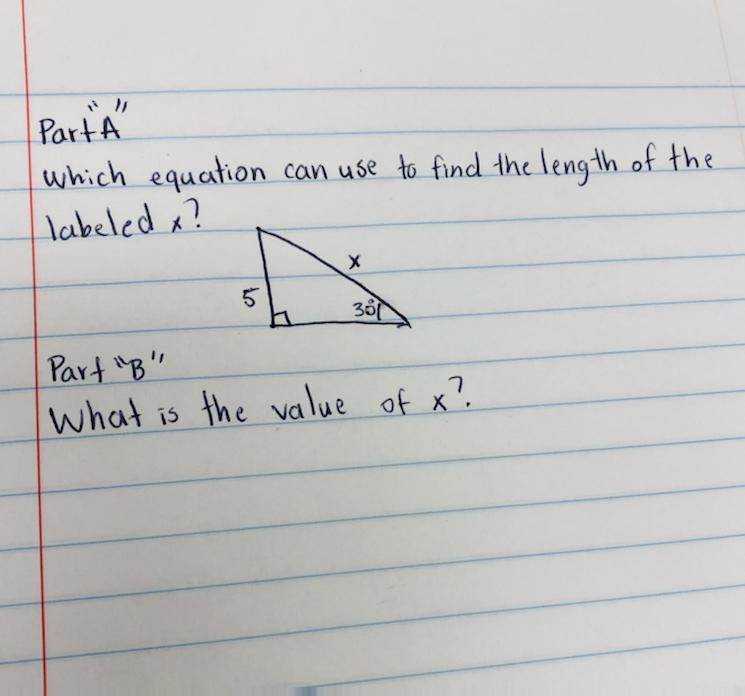 Part "A"
Which equation can use to find the length of the
labeled x?
x
5
30°
Part "B"
What is the value of x?